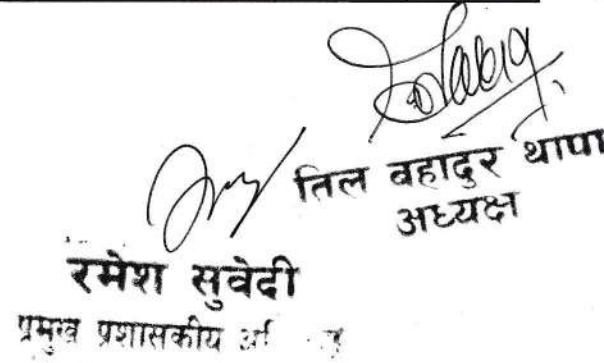 तिल वहादुर थापा
अध्यक्ष
रमेश सुवेदी
प्रमुख प्रशासकीय